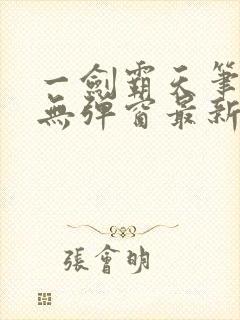 一劍霸天筆
無彈窗最新
張會明